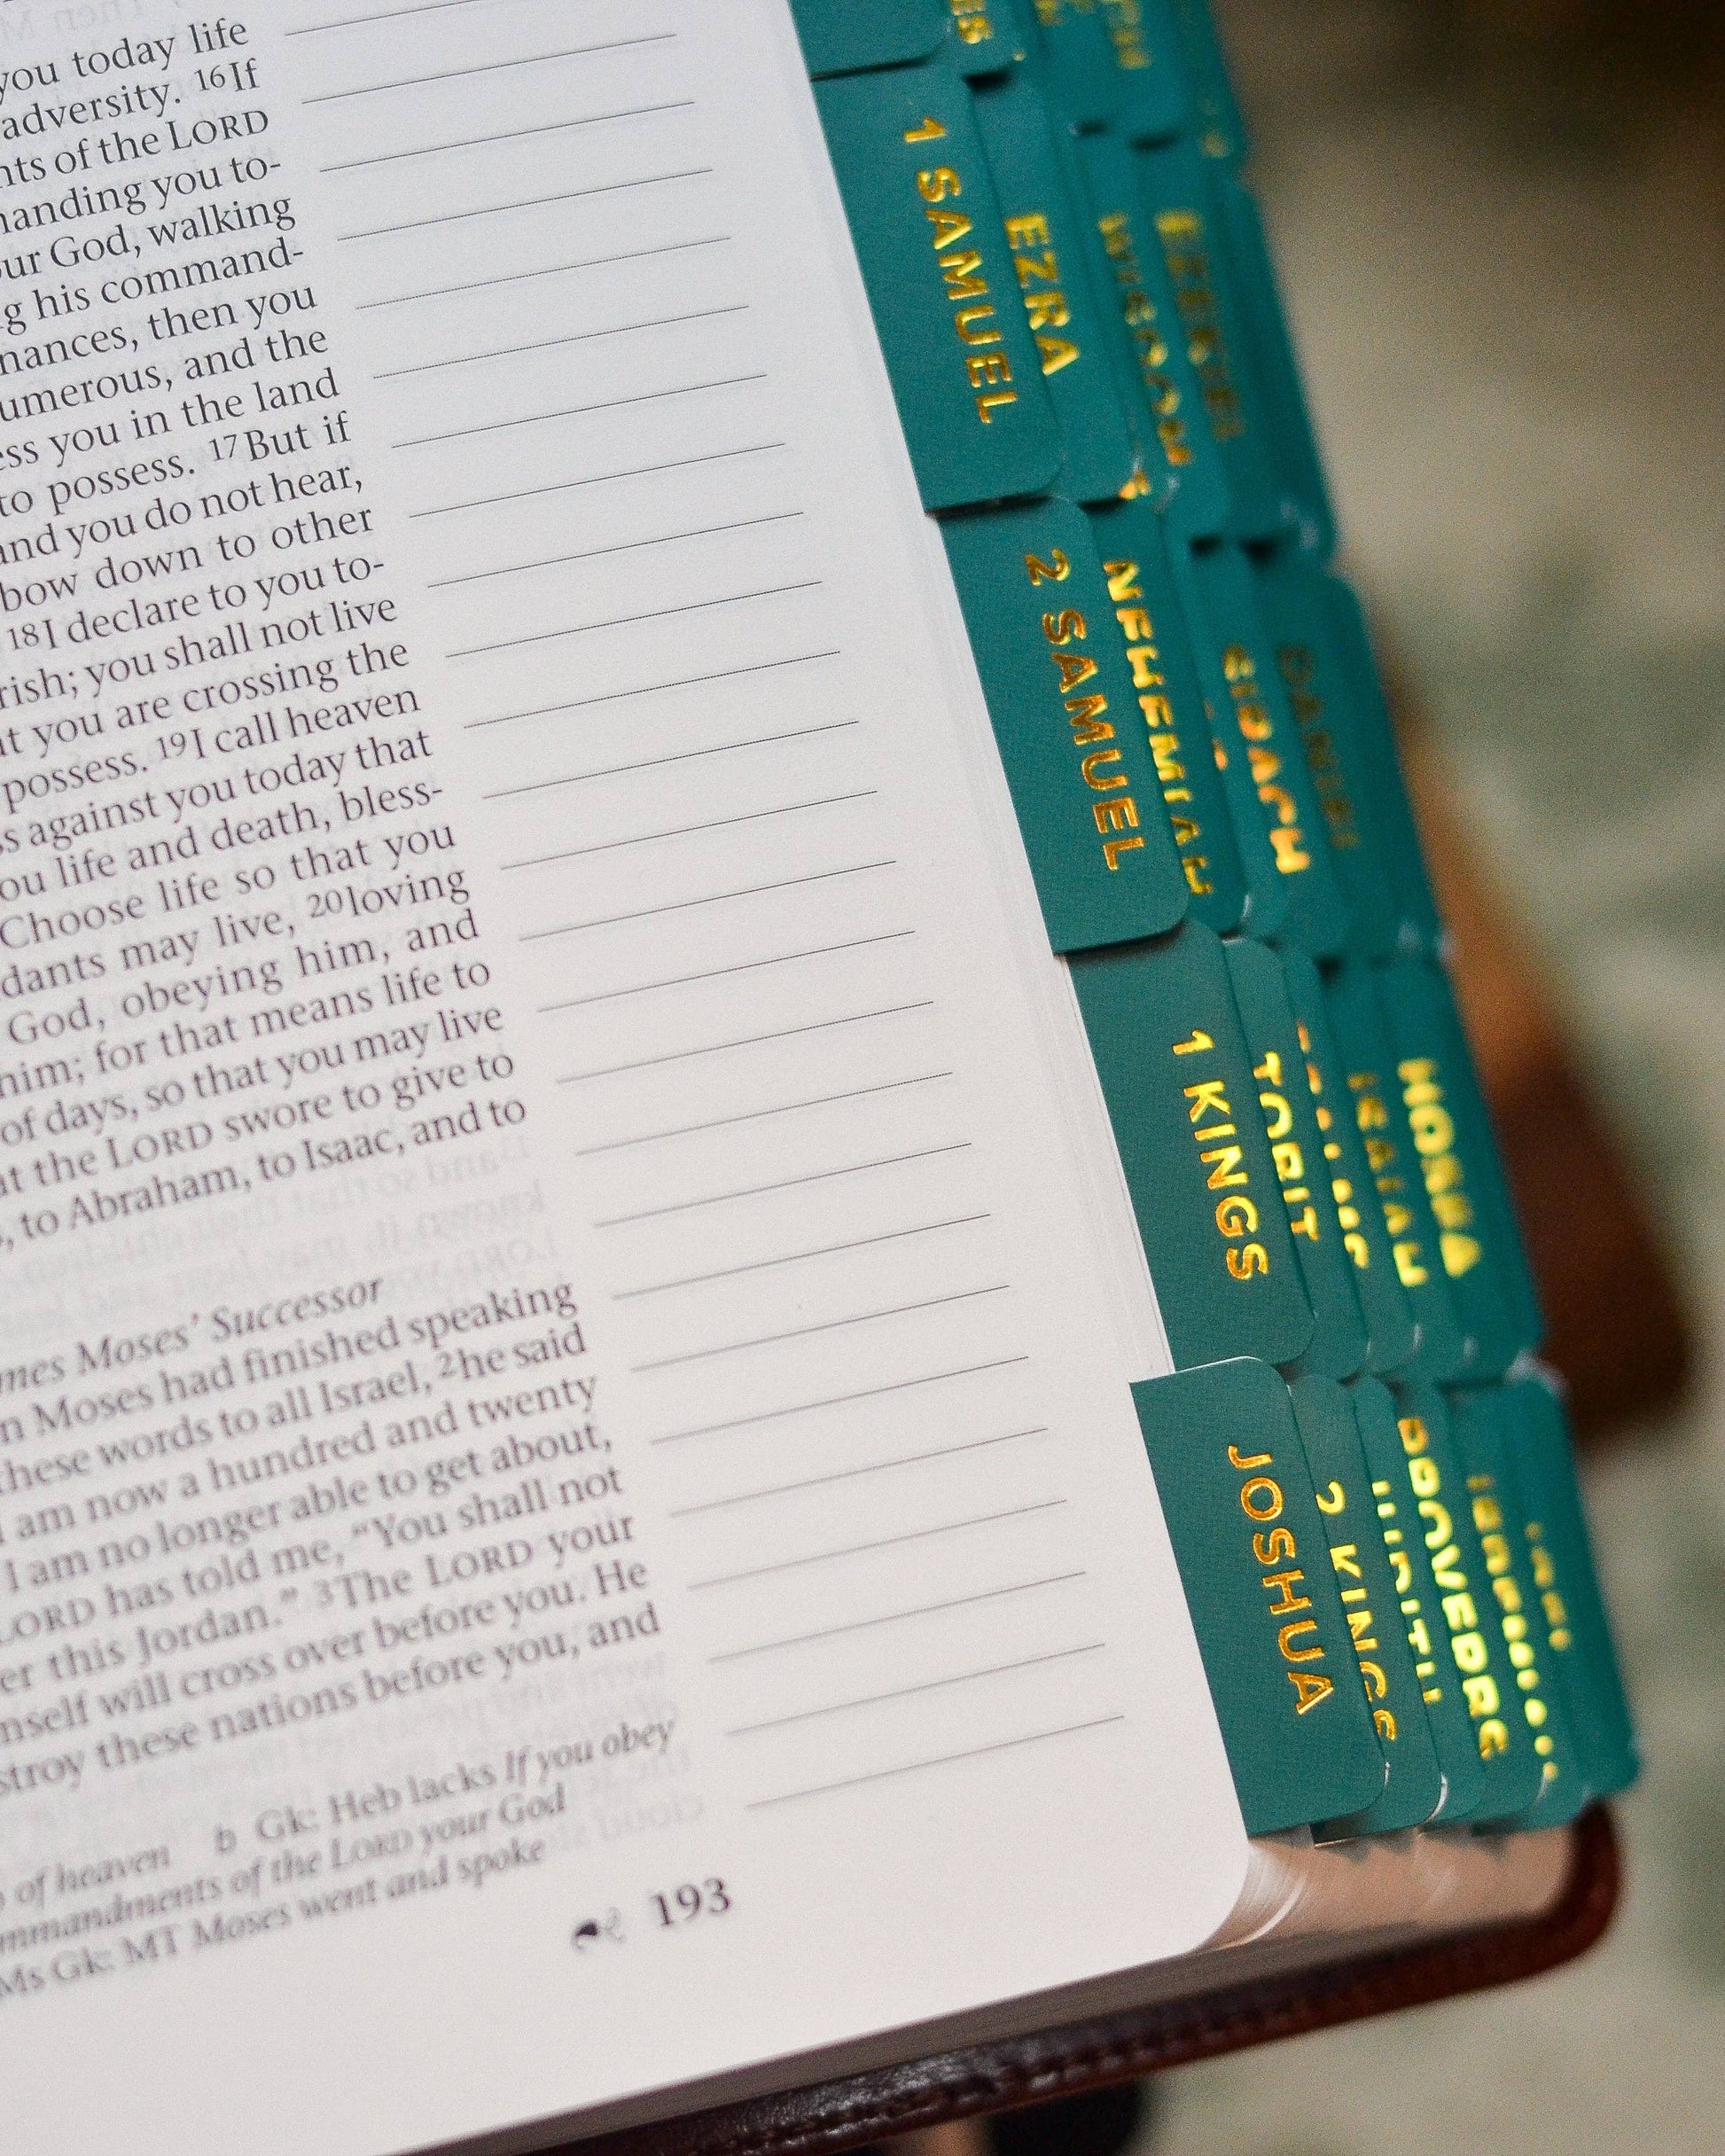 you today life
adversity. 16If
of the LORD
you to-
God, walking
his command-
then you
and the
you in the land
to possess. 17But if
and you do not hear,
bow down to other
18I declare to you to-
you shall not live
you are crossing the
possess. 19I call heaven
against you today that
life and death, bless-
Choose life so that you
may live, 20loving
God, obeying him, and
him; for that means life to
of days, so that you may live
the LORD swore to give to
to Abraham, to Isaac, and to
Moses’ Successor
Moses had finished speaking
these words to all Israel, 2he said
am now a hundred and twenty
I am no longer able to get about,
LORD has told me, “You shall not
this Jordan.” 3The LORD your
will cross over before you. He
these nations before you, and
of heaven b Gk: Heb lacks If you obey
of the LORD your God
Ms Gk: MT Moses went and spoke
193
1 SAMUEL
2 SAMUEL
1 KINGS
JOSHUA
EZRA
NEHEMIAH
TOBIT
2 KINGS
JUDITH
WISDOM
SIRACH
PSALMS
PROVERBS
EZEKIEL
DANIEL
ISAIAH
HOSEA